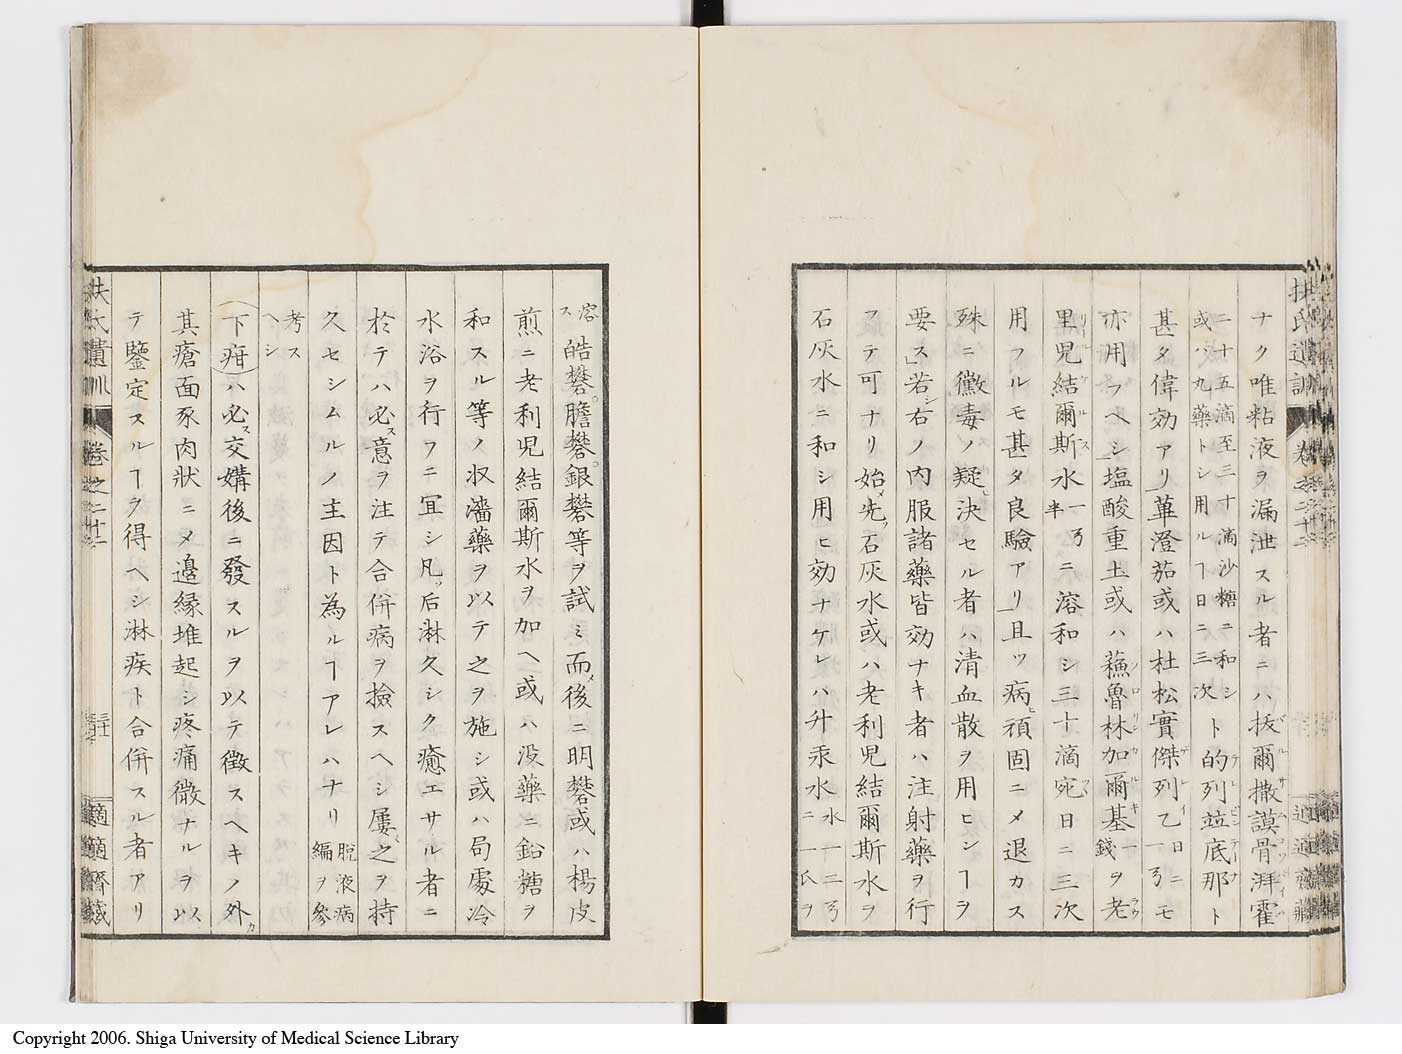 ナク唯粘液ヲ漏泄スルヿ者ニハ抜爾撒謨骨湃霍
二十五滴至三十滴沙糖ニ和シ
或ハ丸藥トシ用ルヿ日ニ三次
ト的列並底那ト
甚タ偉効アリ」蓽澄茄或ハ杜松實傑列乙一弓日ニモ
亦用フヘシ」塩酸重土或ハ蘓魯林加爾基一錢ヲ老
里児結爾斯水一弓半ニ溶和シ三十滴宛日ニ三次
用フルモ甚タ良驗アリ」且ツ病頑固ニメ退カス
殊ニ黴毒ノ疑决セル者ハ清血散ヲ用ヒシヿヲ
要ス」若シ右ノ内服諸藥皆効ナキ者ハ注射藥ヲ行
フテ可ナリ始メ先ツ石灰水或ハ老利児結爾斯水ヲ
石灰水ニ和シ用ヒ効ナケレハ升汞水水一二弓ニ一瓜ヲ
溶ス
皓礬。膽礬。銀礬等ヲ試ミ而メ後ニ明礬或ハ楊皮
煎ニ老利児結爾斯水ヲ加ヘ或ハ没藥ニ鉛糖ヲ
和スル等ノ収濇藥ヲ以テ之ヲ施シ或ハ局處冷
水浴ヲ行フニ宜シ凡ソ后淋久シク癒エサル者ニ
於テハ必ス意ヲ注テ合併病ヲ撿スヘシ屢之ヲ持
久セシムルノ主因ト為ルヿアレハナリ脱液病編ヲ參
考スヘシ
(下疳)ハ必ス交媾後ニ發スルヲ以テ徴スヘキノ外カ
其瘡面豕肉狀ニメ邉縁堆起シ疼痛微ナルヲ以
テ鑒定スルヿヲ得ヘシ淋疾ト合併スル者アリ
扶氏遺訓
卷之二十二
適適齋藏
Copyright 2006. Shiga University of Medical Science Library